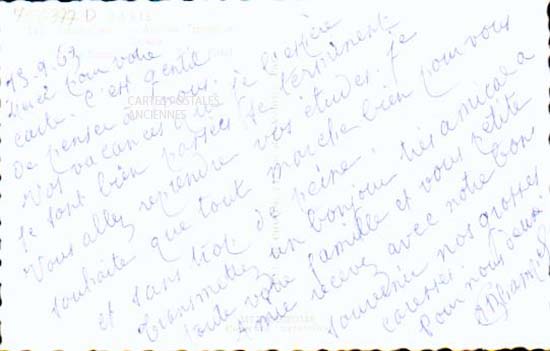 377 D
13.9.63
Merci pour votre
carte. C'est gentil
de penser à nous.
Vos vacances que je l'espère
se sont bien passées se terminent.
Vous allez reprendre vos études. Je
souhaite que tout marche bien pour vous
et sans trop de peine.
Transmettez un bonjour très amical a
toute votre famille et vous petite
amie recevez avec notre bon
souvenir nos grosses
caresses.
Pour nous deux
CARTES POSTALES
ANCIENNES